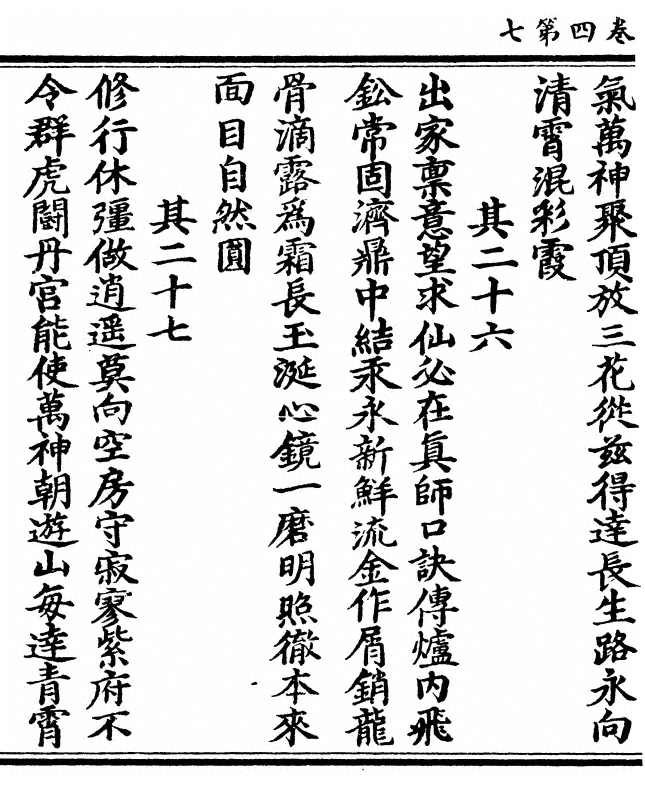 卷四第七
氣萬神聚頂放三花從茲得達長生路永向
清霄混彩霞
其二十六
出家禀意望求仙必在真師口訣傳爐內飛
鈆常固濟鼎中結汞永新鮮流金作屑銷龍
骨滴露為霜長玉涎心鏡一磨明照徹本來
面目自然圓
其二十七
修行休彊做逍遥莫向空房守寂寥紫府不
令群虎鬭丹宮能使萬神朝遊山每達青霄